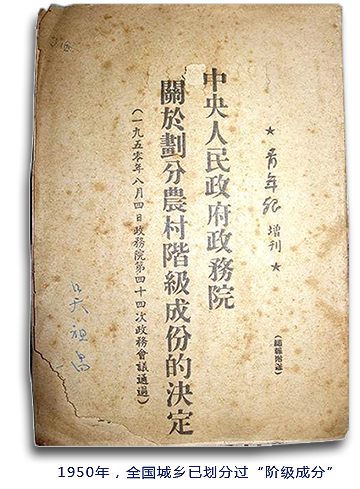 ★ 青年报 增刊 ★
中央人民政府政務院
關於劃分農村階級成份的決定
(一九五零年八月四日政務院第四十四次政務會議通過)
1950年，全国城乡已划分过“阶级成分”